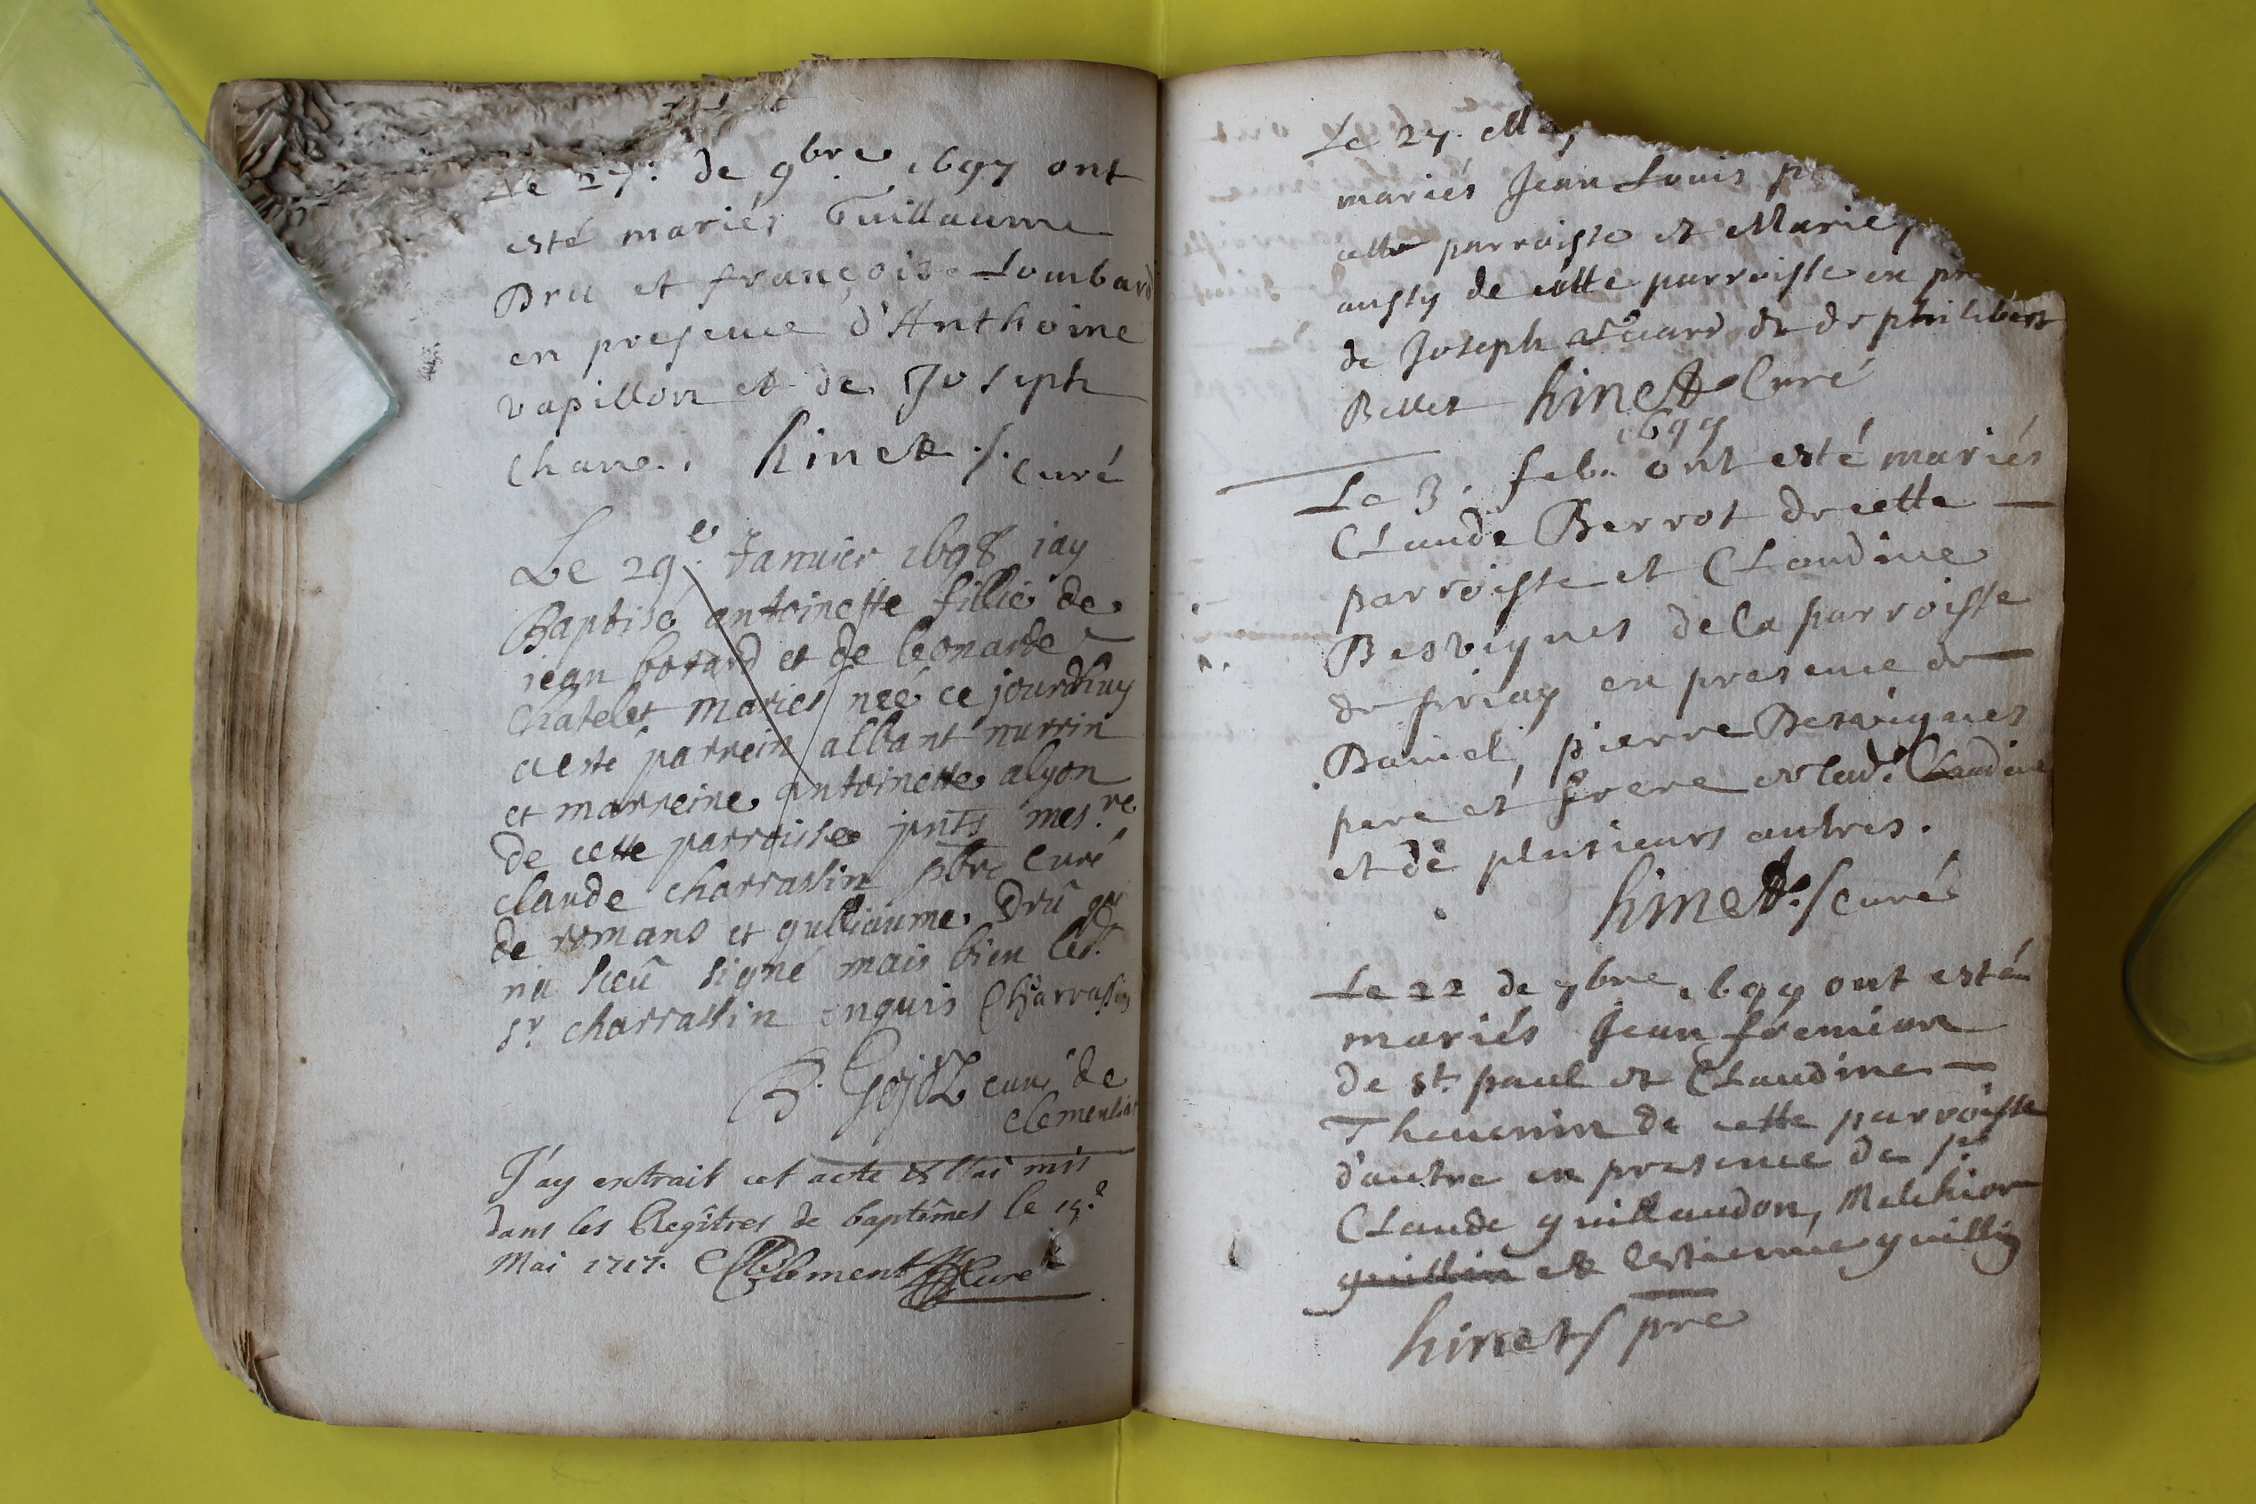 Le 27. de 9bre 1697 ont
esté mariés Guillaume
Dru et françoise Lombard
en presence d'Anthoine
vapillon et de Joseph
chane. hinet ./. curé
Le 29e Januier 1698 iay
Baptisé antoinette fillie de
iean borard et de leonarde
chatelet maries neé ce jourdhuy
a esté parrein albant nurrin
et marreine antoinette alyon
de cette parroisse pnts mesre
claude charrassin pbre curé
de romans et gulliaume Drû qui
na sceû signé mais bien led.
sr charrassin enquis Charrassin
B. Gojoz curé de
clementiat
J'ay extrait cet acte & l'ai mis
dans les Regîtres de baptêmes le 15.e
Mai 1717. Clement Curé
Le 27. May
mariés Jean Louis
cette parroisse et Marie
aussy de cette parroisse en pre
de Joseph et de philibert
Bellet hinet Curé
1699
Le 3. feb. ont esté mariés
Claude Berrot de cette
parroisse et Claudine
Desvignes de la parroisse
de en presence de
Daniel, pierre Desvignes
pere et frere de lad.e Claudine
et de plusieurs autres.
hinet ./ curé
Le 22 de 7bre 1699 ont esté
mariés Jean fremion
de st. paul et Claudine
Thevenin de cette parroisse
d'autre en presence de sr
Claude guillaudon, Melchior
guillin et estienne guillin
hinet / pre